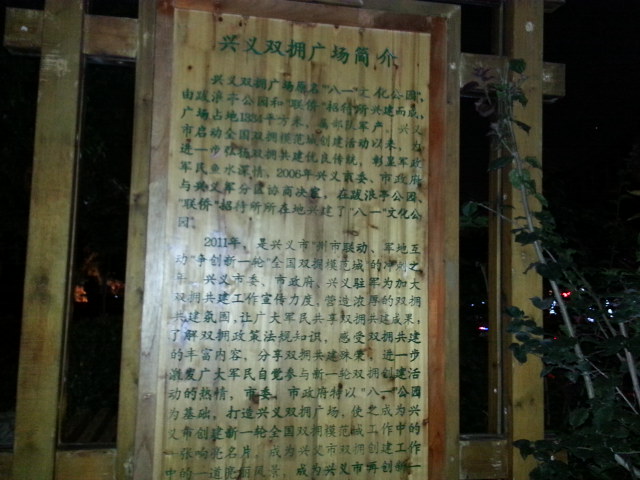 兴义双拥广场简介
兴义双拥广场原名“八一”文化公园”，
由跋淮亭公园和“联侨”招待所兴建而成，
广场占地1334平方米，属部队军产，兴义
市启动全国双拥模范城创建活动以来，为
进一步弘扬双拥共建优良传统，彰显军政
军民鱼水深情，2006年兴义市委、市政府
与兴义军分区协商决定，在跋淮亭公园、
“联侨”招待所所在地兴建了“八一”文化公
园。
2011年，是兴义市“州市联动、军地互
动”争创新一轮“全国双拥模范城”的冲刺之
年，兴义市委、市政府、兴义驻军为加大
双拥共建工作宣传力度，营造浓厚的双拥
共建氛围，让广大军民共享双拥共建成果，
了解双拥政策法规知识，感受双拥共建
的丰富内容，分享双拥共建殊荣，进一步
激发广大军民自觉参与新一轮双拥创建活
动的热情，市委、市政府特以“八一”公园
为基础，打造兴义双拥广场，使之成为兴
义市创建新一轮全国双拥模范城工作中的
一张响亮名片，成为兴义市双拥创建工作
中的一道亮丽风景，成为兴义市再创新一